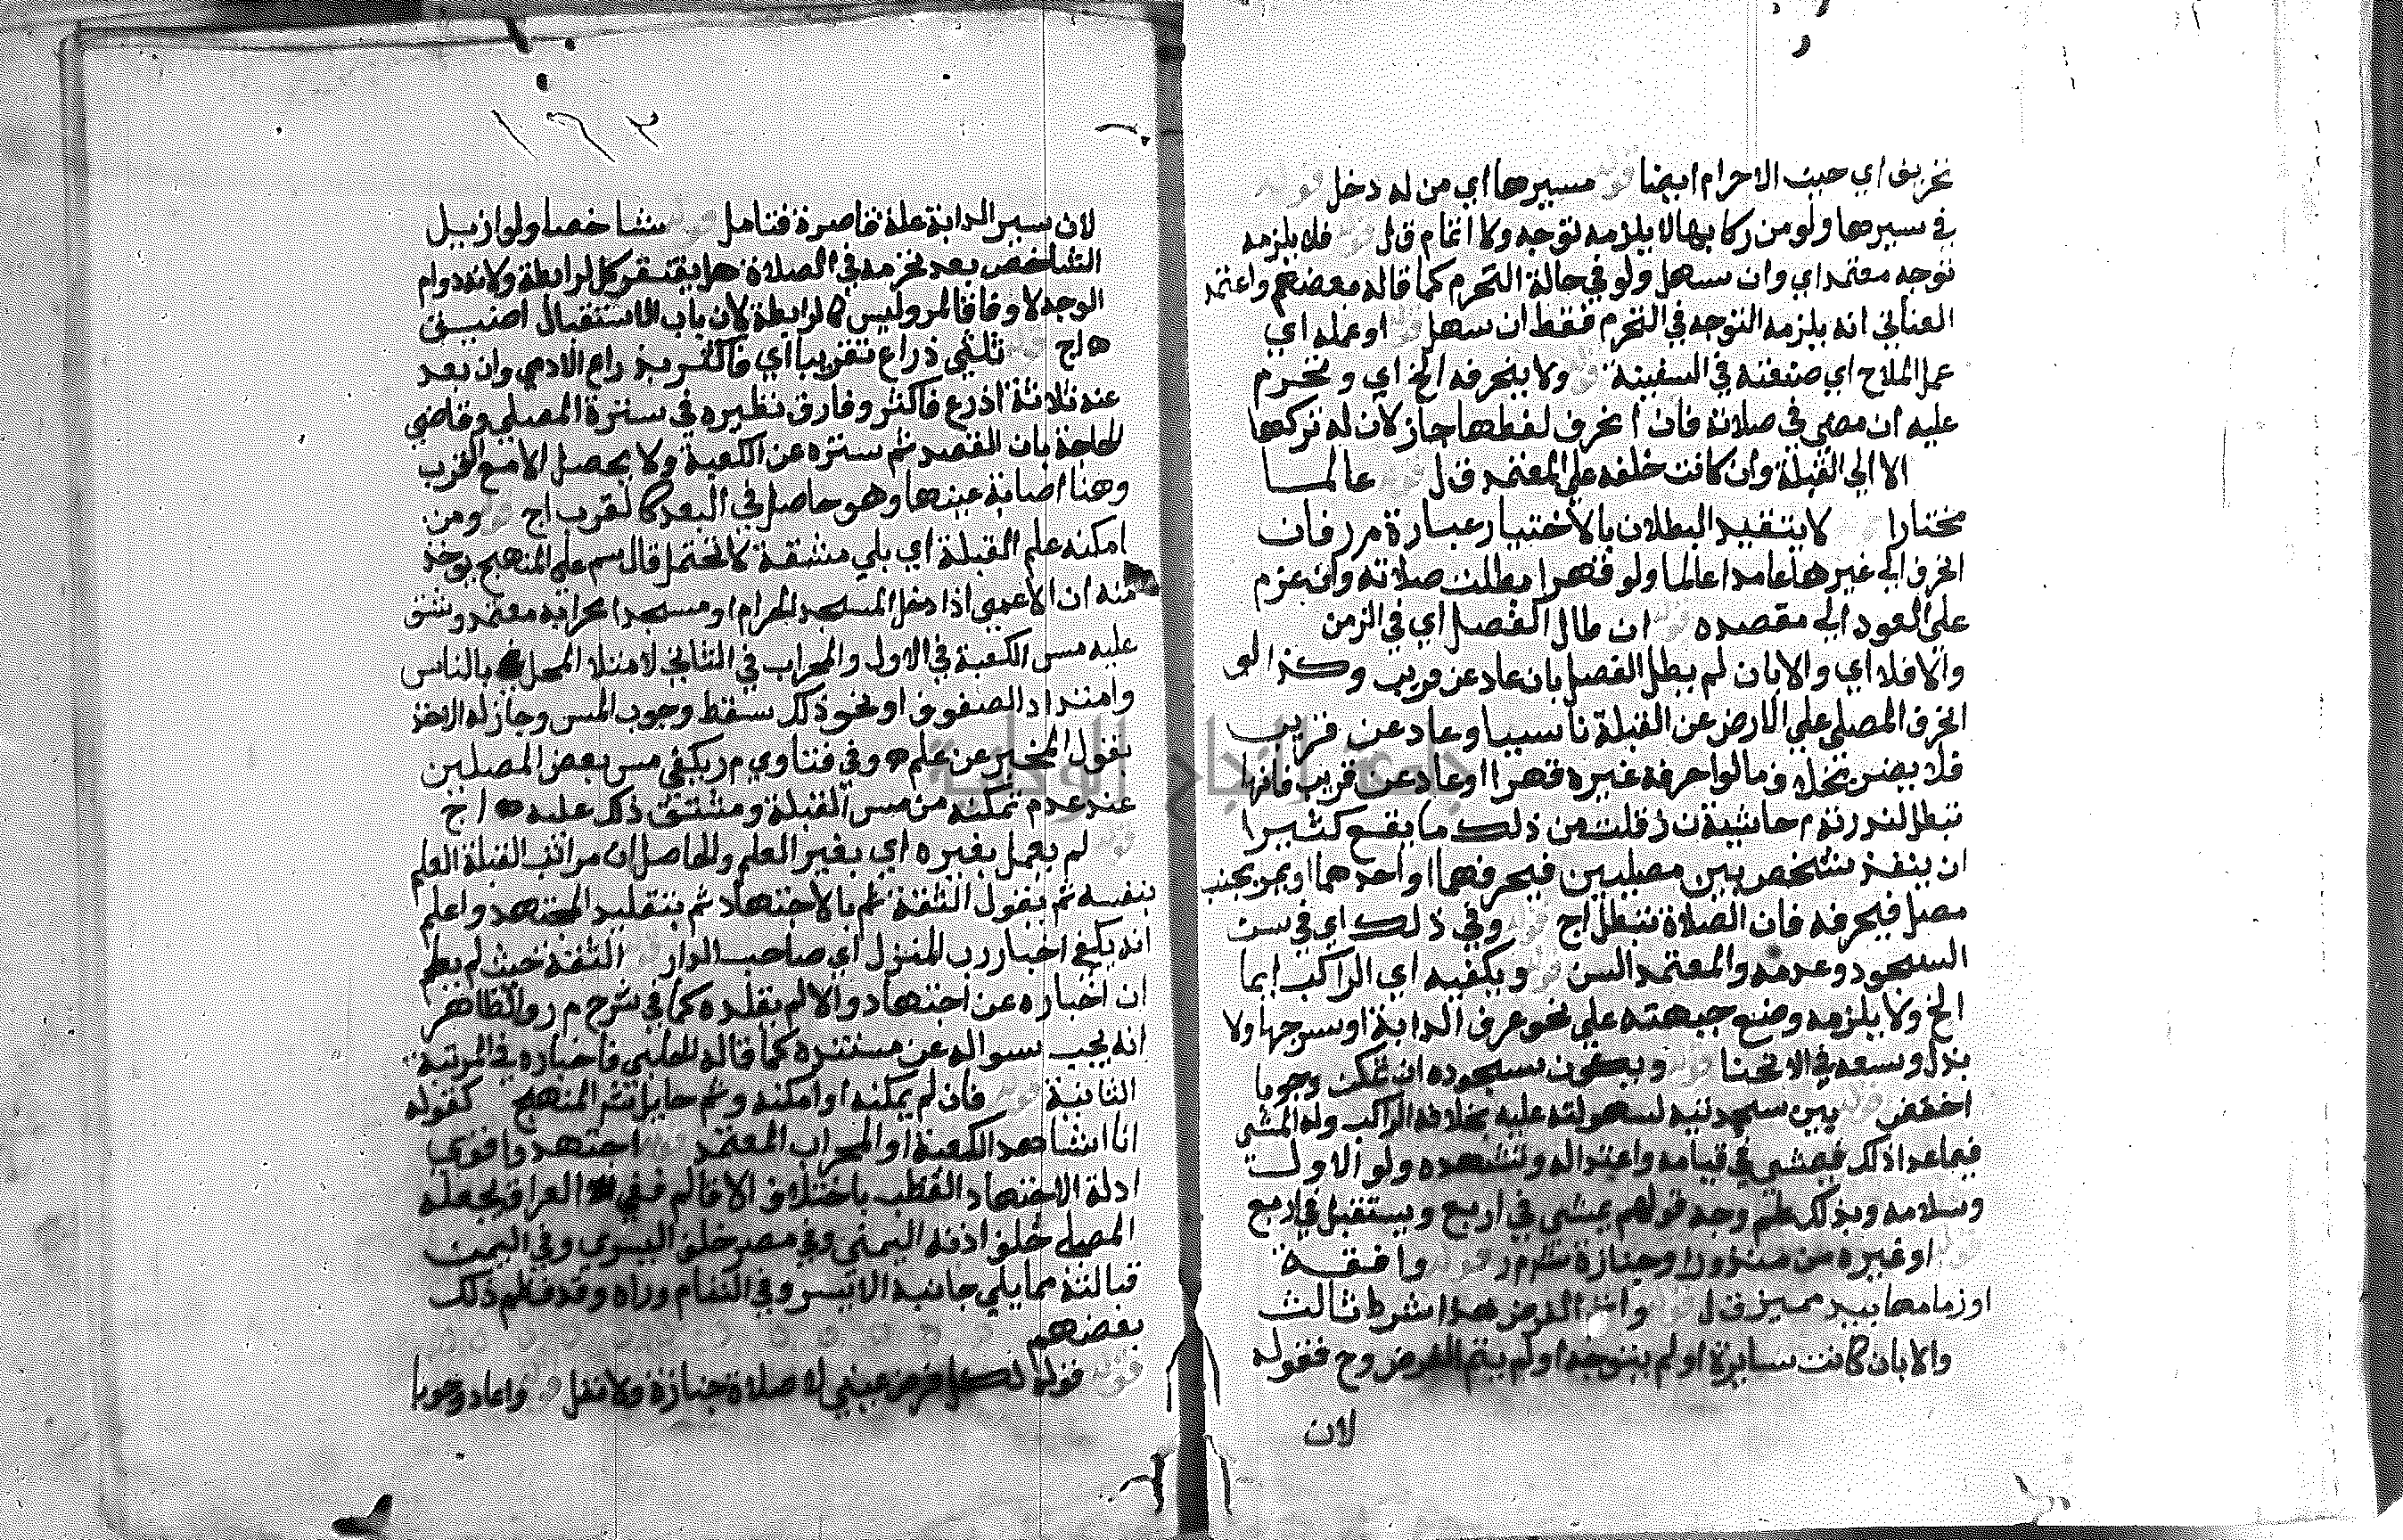 اي حيث الاحرام ايضا قوله مسيرها اي من له دخل قوله
في سيرها ولو من ركابها لا يلزمه توجه ولا اتمام ق ل قوله فلا يلزمه
توجه معتمد اي وان سهل ولو في حالة التحرم كما قاله بعضهم واعتمد
العناني انه يلزمه التوجه في التحرم فقط ان سهل قوله او عمله اي
عمل الملاح اي صنعته في السفينة قوله ولا ينحرف الخ اي ويحرم
عليه ان مضي في صلاته فان انحرف لقطعها جاز لان له تركها
الا الي القبلة وان كانت خلفه علي المعتمد ق ل قوله عالما
مختارا لا يتقيد البطلان بالاختيار عبارة م ر فان
انحرف الي غيرها عامدا عالما ولو قهرا بطلت صلاته وان عزم
علي العود الي مقصده قوله ان طال الفصل اي في الزمن
والا فلا اي والا بان لم يطل الفصل بان عاد عن قريب وكذا لو
انحرف المصلي علي الارض عن القبلة ناسيا وعاد عن قريب
فلا يضر بخلاف ما لو احرفه غيره قهرا وعاد عن قريب فانها
تبطل لندرته م حاشية ن ز قلت من ذلك ما يقع كثيرا
ان ينفذ شخص بين مصليين فيحرفهما او احدهما او يمر بجنب
مصل فيحرفه فان الصلاة تبطل اج قوله وفي ذلك اي في ست
السجود وعدمه والمعتمد السن قوله ويكفيه اي الراكب ايما
الخ ولا يلزمه وضع جبهته علي نحو عرف الدابة او سرجها ولا
بذل وسعه في الانحنا قوله ويكون سجوده ان تمكن وجوبا
اخفض قوله بين سجدتيه لسهولته عليه بخلاف الراكب وله المشي
فيما عدا ذلك فيمشي في قيامه واعتداله وتشهده ولو الاول
وسلامه وبذلك علم وجه قولهم يمشي في اربع ويستقبل في اربع
قوله او غيره من منذور او جنازة قوله واقفة
او زمامها بيد مميز ق ل قوله واتم الفرض هذا شرط ثالث
والا بان كانت سايرة او لم يتوجه او لم يتم الفرض وح فقوله
لان
١٦٢
لان سير الدابة علة قاصرة فتامل قوله شاخصا ولو ازيل
الشاخص بعد تحرمه في الصلاة هل يغتفر كل لرابطة ولانه دوام
الوجه لا وفاقا لمر وليس كالرابطة لان باب الاستقبال اضيق
ه اج قوله ثلثي ذراع تقريبا اي فاكثر بذراع الادمي وان بعد
عنه ثلاثة اذرع فاكثر وفارق نظيره في سترة المصلي وقاضي
الحاجة بان القصد ثم ستره عن الكعبة ولا يحصل الا مع القرب
وهنا اصابة عينها وهو حاصل في البعد كالقرب اج قوله ومن
امكنه علم القبلة اي بلي مشقة لا تحتمل قال سم علي المنهج يوخذ
منه ان الاعمي اذا دخل المسجد الحرام او مسجدا محرابه معتمد وشق
عليه مس الكعبة في الاول والمحراب في الثاني لامتلا المحل بالناس
وامتداد الصفوف او نحو ذلك سقط وجوب المس وجاز له الاخذ
بقول المخبر عن علم ه وفي فتاوي م ر يكفي مس بعض المصلين
عند عدم تمكنه من مس القبلة ومشقق ذلك عليه ه اج
قوله لم يعمل بغيره اي بغير العلم والحاصل ان مراتب القبلة العلم
بنفسه ثم بقول الثقة ثم بالاجتهاد ثم بتقليد المجتهد واعلم
انه يكفي اخبار رب المنزل اي صاحب الدار قوله الثقة حيث لم يعلم
ان اخباره عن اجتهاد والا لم يقلده كما في شرح م ر والظاهر
انه يجب سواله عن مستنده كما قاله الحلبي فاخباره في المرتبة
الثانية قوله فان لم يمكنه او امكنه وثم حايل المنهج كقوله
انا اشاهد الكعبة او المحراب المعتمد قوله اجتهد واقوي
ادلة الاجتهاد القطب باختلاف الاقاليم ففي العراق يجعله
المصلي خلف اذنه اليمني وفي مصر خلف اليسري وفي اليمن
قبالته مما يلي جانبه الايسر وفي الشام وراه وقد نظم ذلك
بعضهم
قوله لكل فرض عيني لا صلاة جنازة ولا نفل قوله واعاد وجوبا